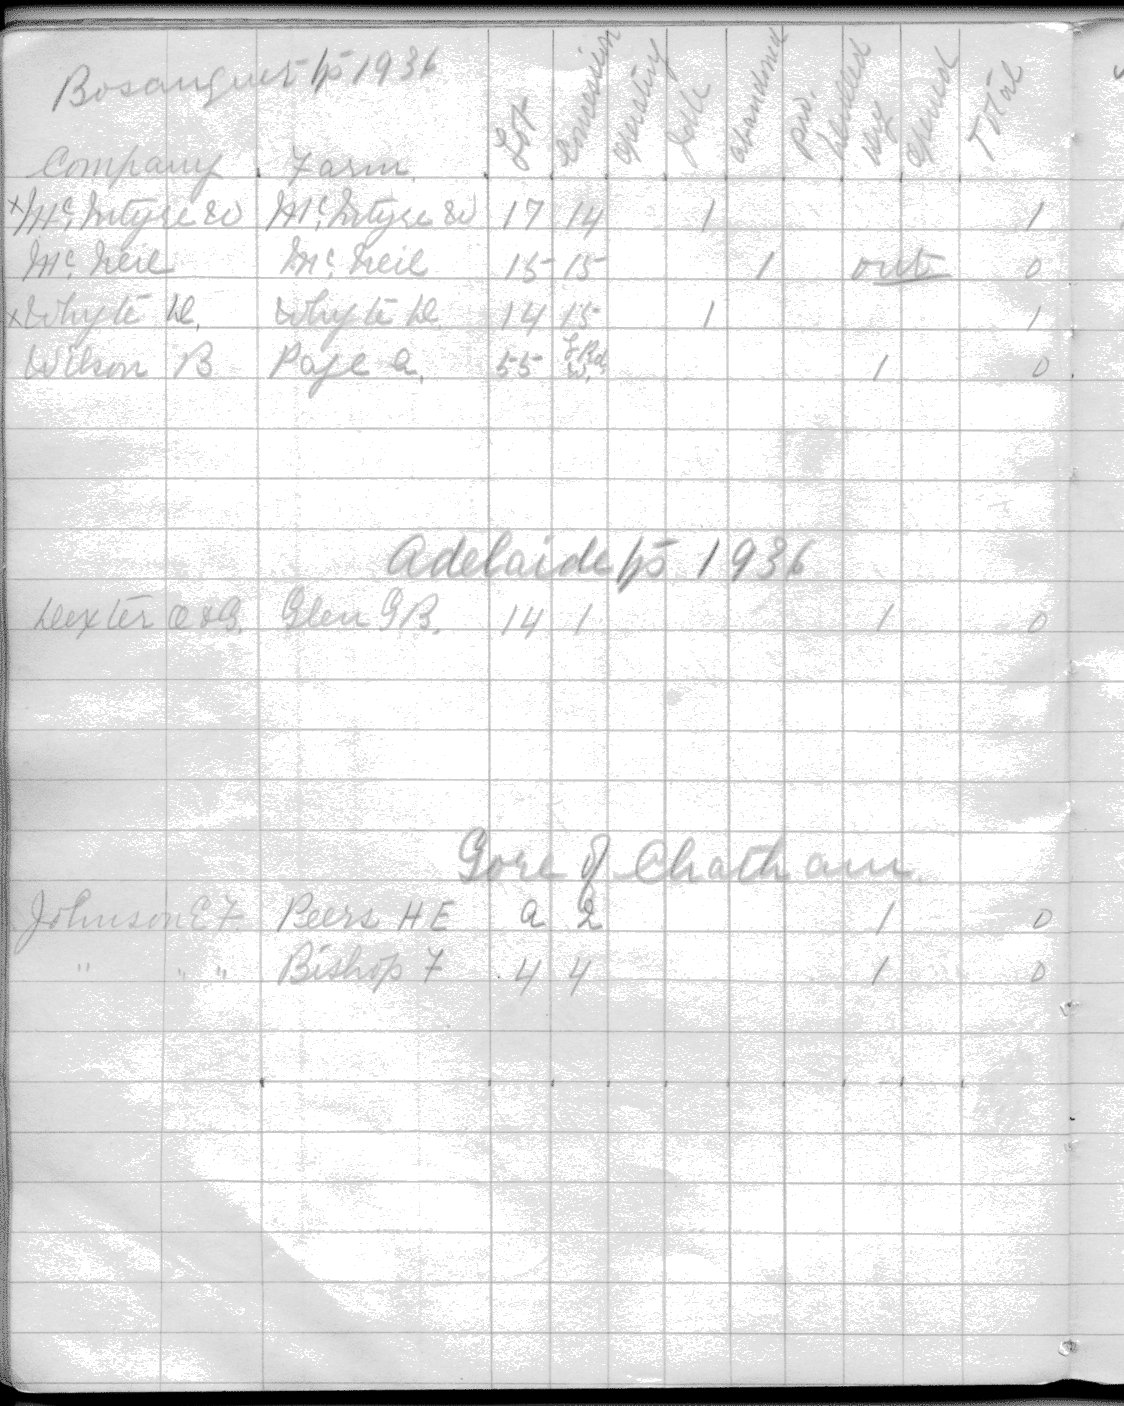 Bosanquet tp 1936
Company Farm Lot Concession operating Idle abandoned pro. drilled dry opened Total
x Mc.Intyre W Mc.Intyre W 17 14 1 1
Mc.Neil Mc.Neil 15 15 1 out 0
x Whyte D. Whyte D. 14 15 1 1
Wilson B Page A. 55 L.Rd. W. 1 0
Adelaide tp 1936
Dexter O & G. Glen G B. 14 1 1 0
Gore of Chatham
Johnson E F. Beers H E A 2 1 0
" " " Bishop F 4 4 1 0